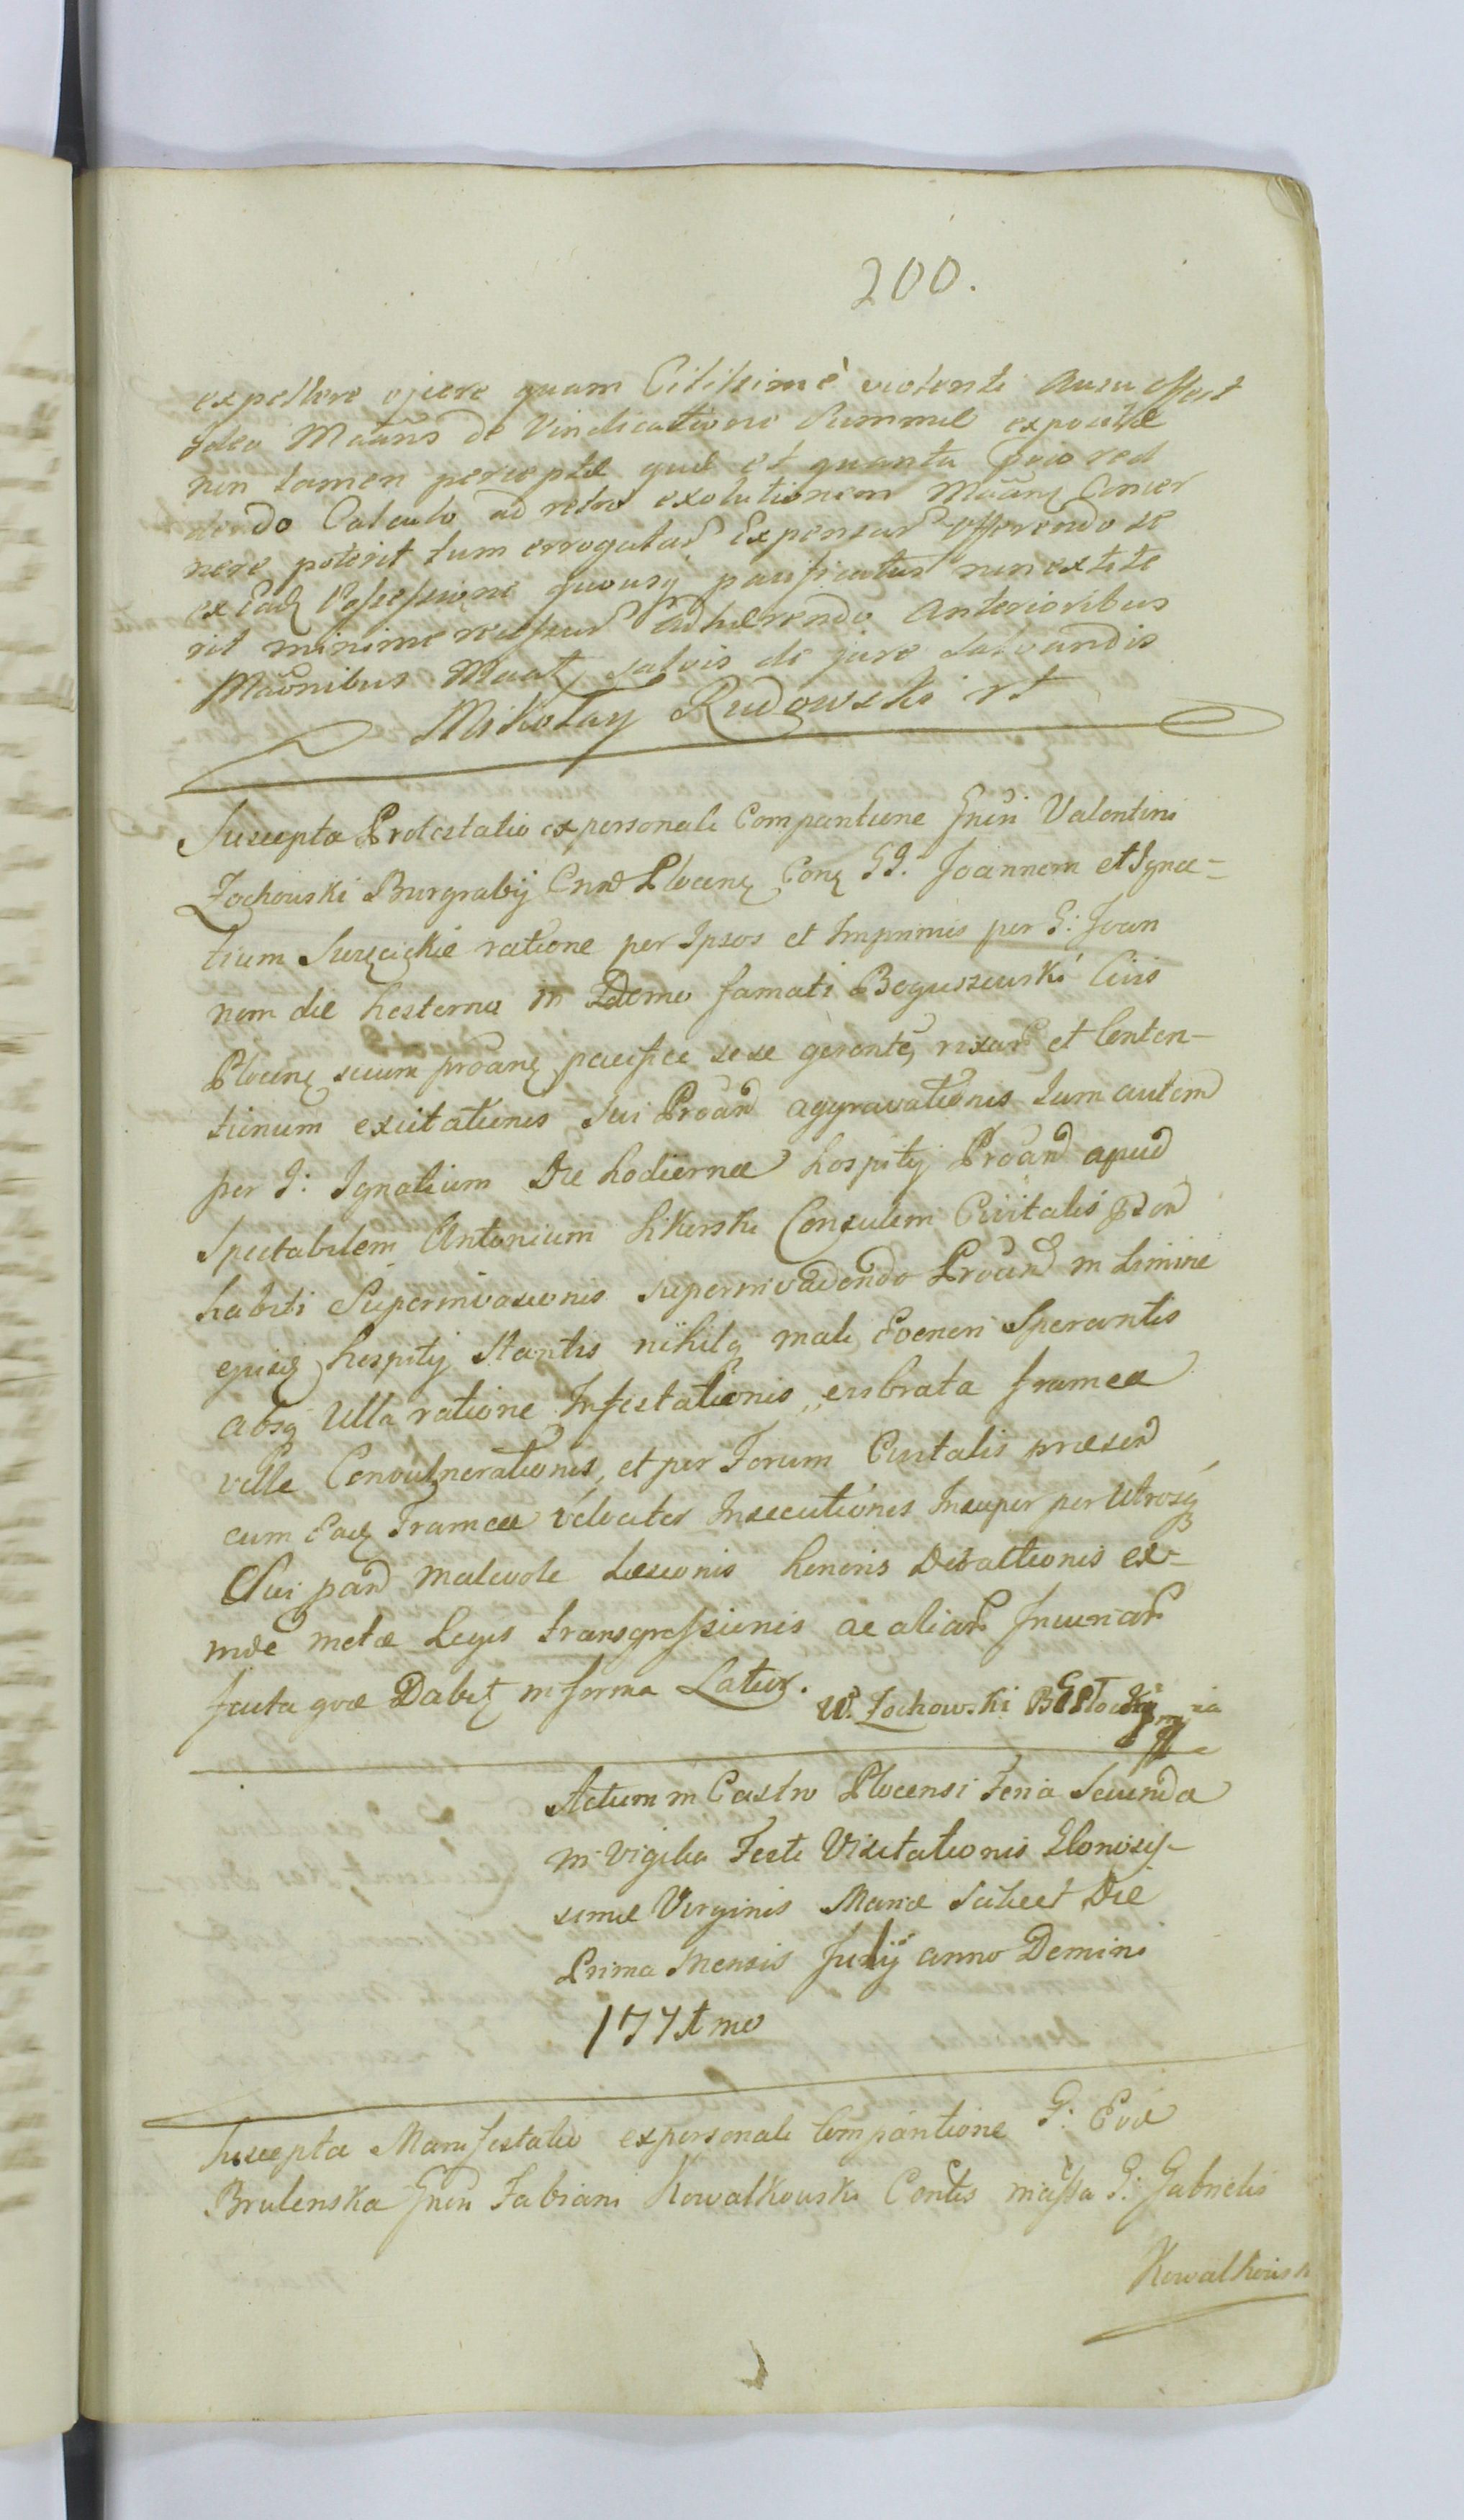 200.
expellere ejicere quam Citissimè violenti Ausu
Ideo Maãns de Vindicatione Summæ expositæ
non tamen perceptæ quæ et quanta red
dendo Calculo ad retro exolutionem
nere poterit tum errogatar Expensar offerendo se
ex Eadʒ Possessione quousqʒ pacificatus non extite
rit minime recessur Adhærendo Anterioribus
Mãonibus Maat, salvis de jure salvandis
Mikołay Rudowski
Suscepta Protestatio ex personali Comparitione Gnẽri Valentini
Zochowski Burgrabij Plocenʒ Conʒ GG. Joannem et Igna=
tium ratione per Ipsos et Imprimis per G: Joan
nem die hesterna in Domo famati Boguszewski Civis
Plocenʒ secum proanʒ pacifice sese gerente, rixar et Conten-
tionum excitationis sui Proan aggravationis tum autem
per G: Ignatium Die hodierna hospitij Proan apud
Spectabilem Antonium Sikorski Consulem Civitatis
habiti Superinvasionis superinvadendo Proan in Limine
ejusdʒ hospitij Stantis nihilqʒ mali Eveneri Sperantis
absqʒ Ulla ratione Infestationis, framea
velle Convulnerationis, et per Forum Civitatis præsen
cum Eadʒ Framea velociter Insecutionis Insuper per Utrosqʒ
Sui pan malevole Læsionis honoris Detractionis ex-
inde metæ Legis transgressionis ac aliar Iniuriar
facta quæ Dabitʒ in forma Latior.
W. Zochowski
Actum in Castro Plocensi Feria Secunda
in Vigilia Festi Visitationis Glorosis-
simæ Virginis Mariæ Scilicet Die
Prima Mensis Julij anno Domini
177
Suscepta Manifestatio ex personali Comparitione G: Evæ
Brulenska Gnẽri Fabiani Kowalkowski Contis G: Gabrielis
Kowalkowsk